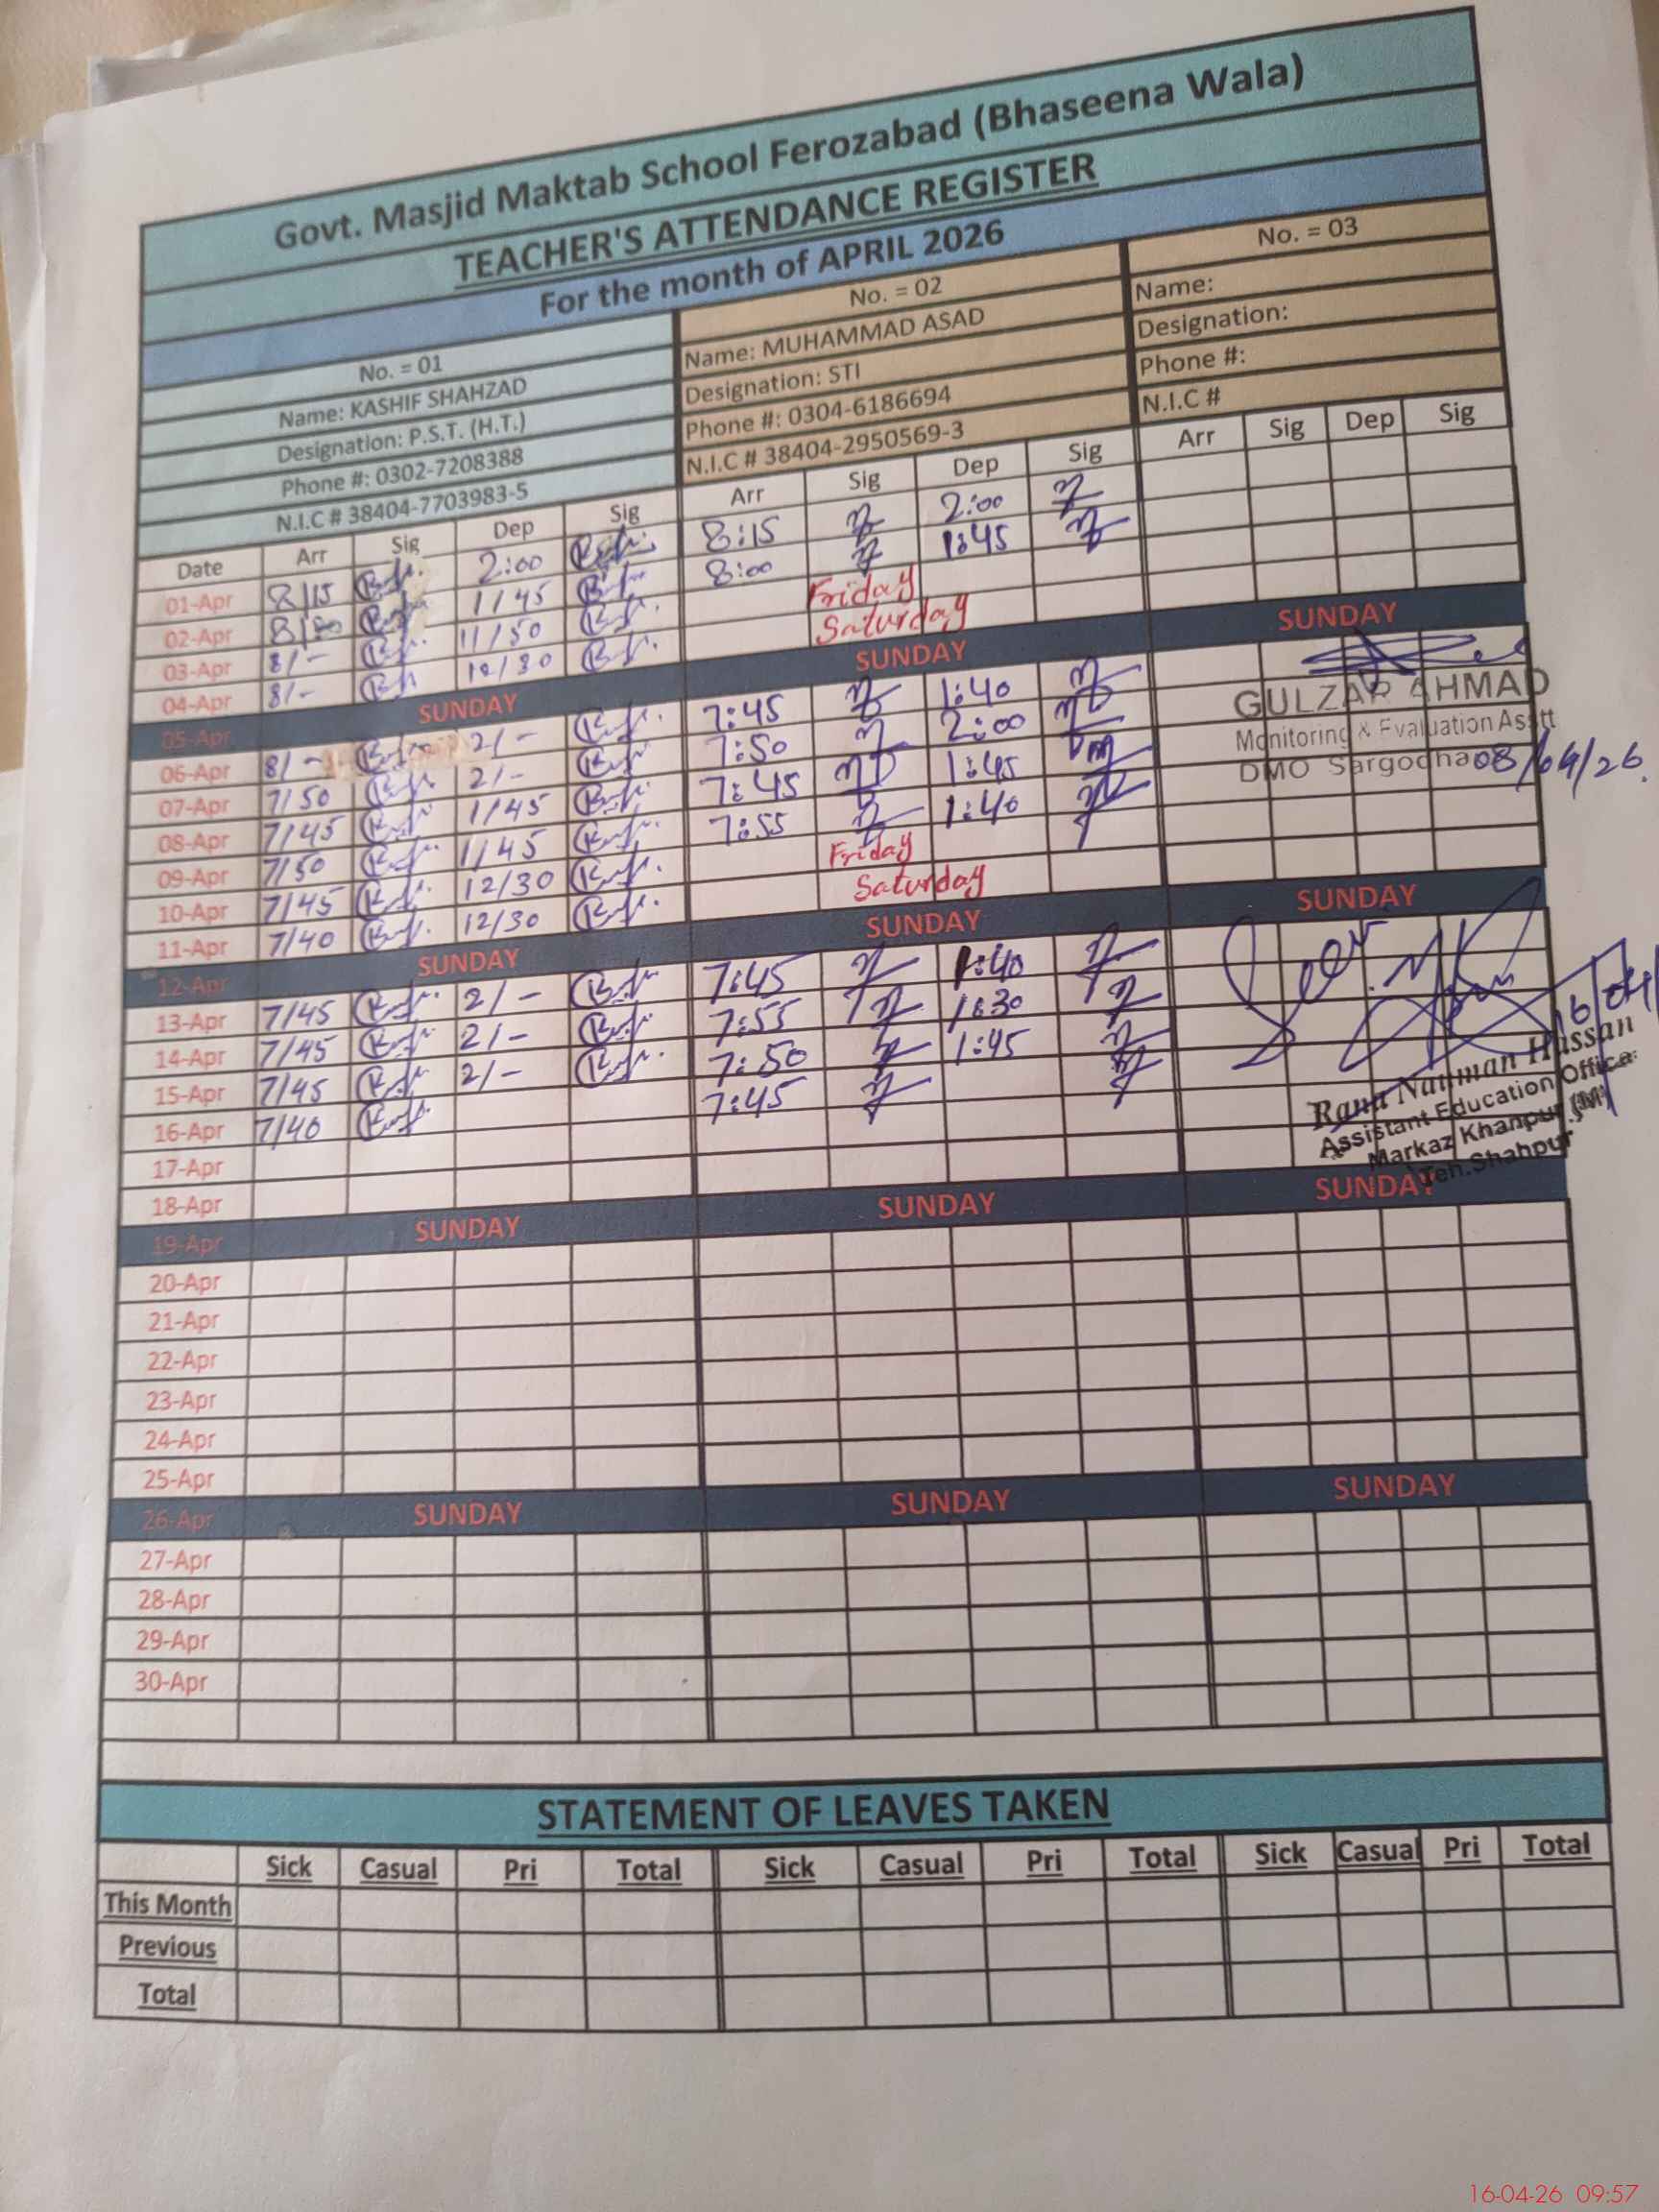 Govt. Masjid Maktab School Ferozabad (Bhaseena Wala)
TEACHER'S ATTENDANCE REGISTER
For the month of APRIL 2026
No. = 01 No. = 02 No. = 03
Name: KASHIF SHAHZAD Name: MUHAMMAD ASAD Name:
Designation: P.S.T. (H.T.) Designation: STI Designation:
Phone #: 0302-7208388 Phone #: 0304-6186694 Phone #:
N.I.C # 38404-7703983-5 N.I.C # 38404-2950569-3 N.I.C #
Date Arr Sig Dep Sig Arr Sig Dep Sig Arr Sig Dep Sig
01-Apr 8/15 2:00 8:15 2:00
02-Apr 1/45 8:00 1:45
03-Apr 8/- 11/50 Friday
04-Apr 8/- 12/30 Saturday
05-Apr SUNDAY SUNDAY SUNDAY
06-Apr 8/- 2/- 7:45 1:40
07-Apr 7/50 2/- 7:50 2:00
08-Apr 7/45 1/45 7:45 1:45
09-Apr 7/50 1/45 7:55 1:40
10-Apr 7/45 12/30 Friday
11-Apr 7/40 12/30 Saturday
GULZAR AHMAD
Monitoring & Evaluation Asstt
DMO Sargodha 08/04/26
12-Apr SUNDAY SUNDAY SUNDAY
13-Apr 7/45 2/- 7:45 1:40
14-Apr 7/45 2/- 7:55 1:30
15-Apr 7/45 2/- 7:50 1:45
16-Apr 7/40 7:45
17-Apr
18-Apr
Rana Nauman Hassan
Assistant Education Officer
Markaz Khanpur (M)
Teh.Shahpur
19-Apr SUNDAY SUNDAY SUNDAY
20-Apr
21-Apr
22-Apr
23-Apr
24-Apr
25-Apr
26-Apr SUNDAY SUNDAY SUNDAY
27-Apr
28-Apr
29-Apr
30-Apr
STATEMENT OF LEAVES TAKEN
Sick Casual Pri Total Sick Casual Pri Total Sick Casual Pri Total
This Month
Previous
Total
16-04-26 09:57